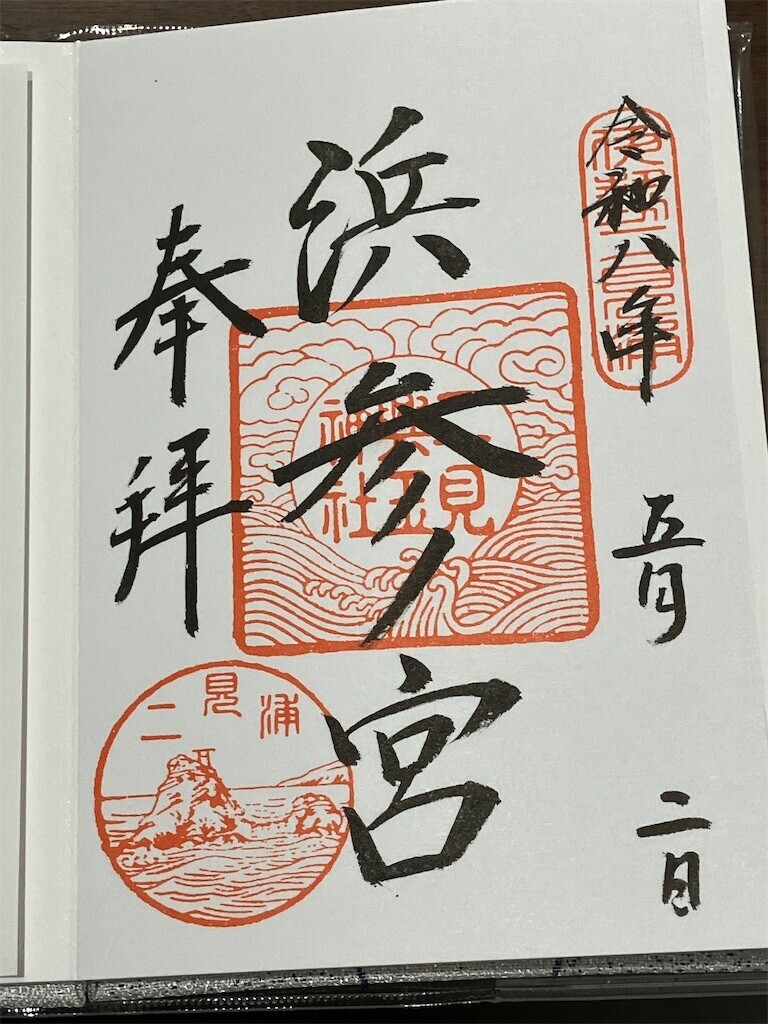 令和八年　五月　二日
浜参ノ宮
二見
興玉
神社
奉拝
二見浦